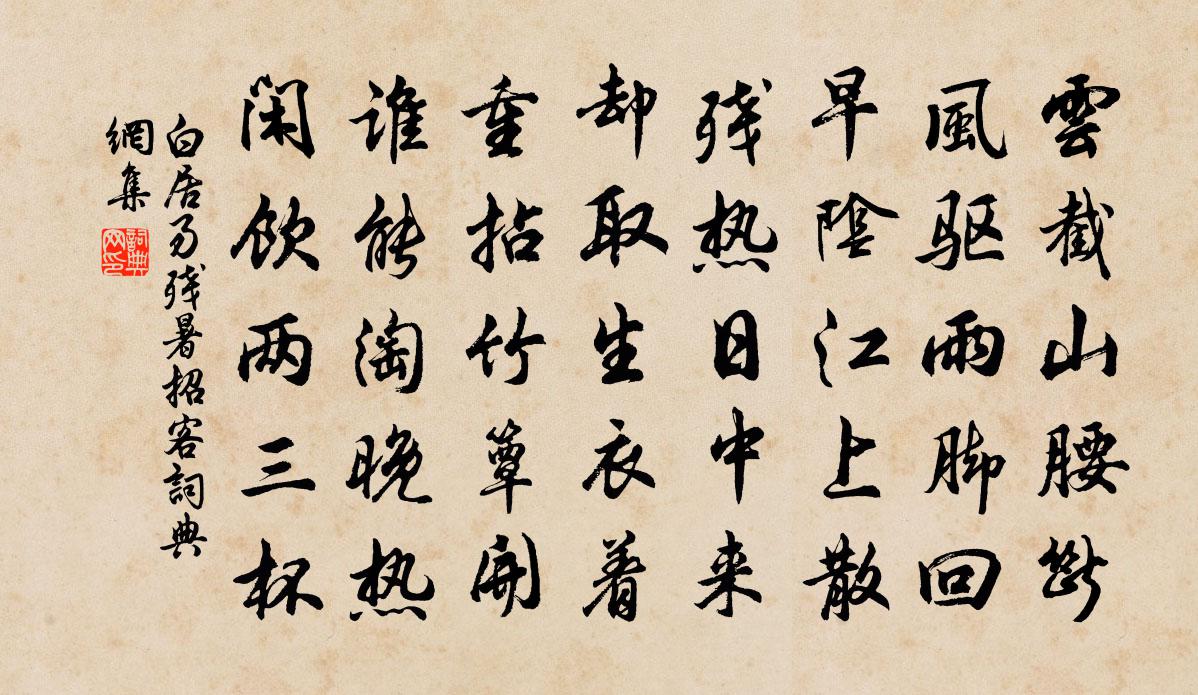 雲截山腰斷
風驱雨脚回
早陰江上散
残热日中来
却取生衣着
重拈竹簟開
谁能淘晚热
闲饮两三杯
白居易残暑招客詞典
網集
詞典网印